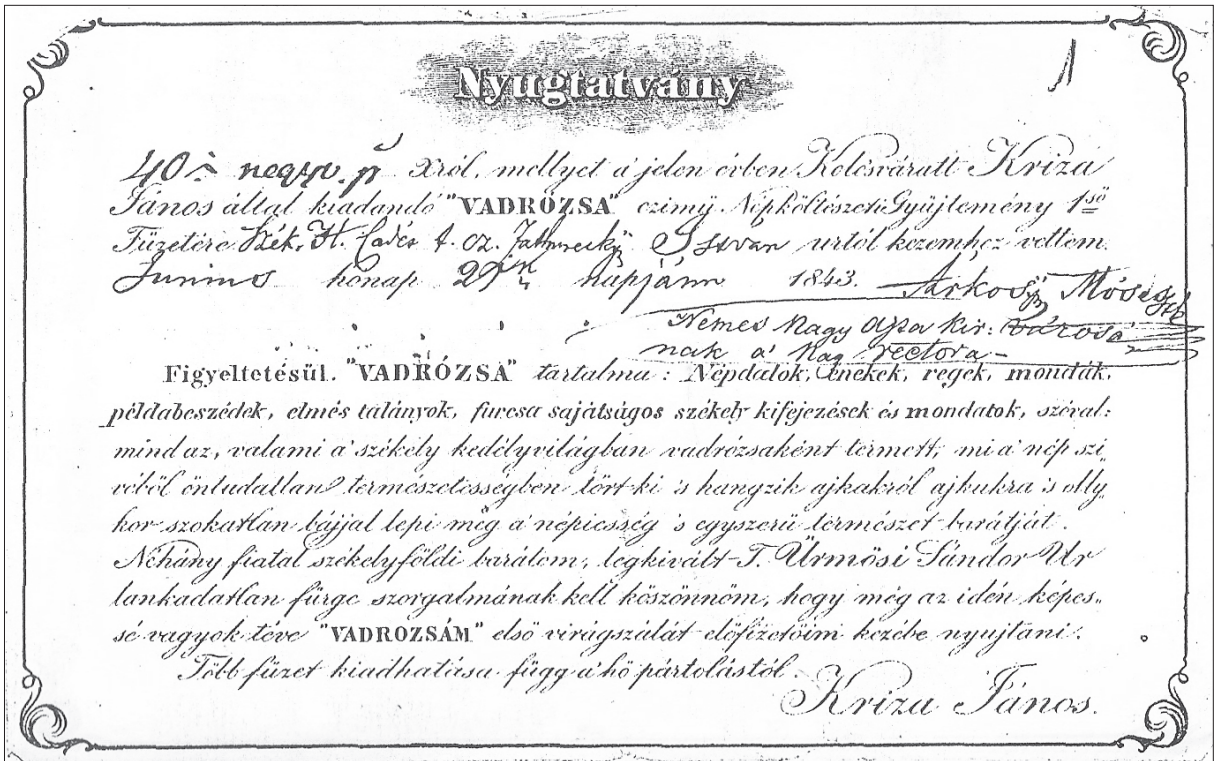 Nyugtatvány
1
40 negyv. p Xról, mellyet a jelen évben Kolosváratt Kriza
János által kiadandó "VADRÓZSA" czimű Népköltészeti Gyüjtemény 1ső
Füzetére Szék. István urtól kezemhez vettem.
Junius hónap 29ik napjánn 1843. Árkosi Móses
Nemes Nagy Ajta kir: városá
nak a' rectora-
Figyeltetésül. "VADRÓZSA" tartalma: Népdalok, énekek, regék, mondák,
példabeszédek, elmés talányok, furcsa sajátságos székely kifejezések és mondatok, szóval:
mind az, valami a' székely kedélyvilágban vadrózsaként termett, mi a' nép szi-
véből öntudatlan természetisségben tört-ki 's hangzik ajkakról ajkukra 's olly
kor szokatlan bájjal lepi meg a' népiesség 's egyszerü természet barátját.
Néhány fiatal székelyföldi barátom, legkivált T. Ürmösi Sándor Ur
lankadatlan fürge szorgalmának kell köszönnöm, hogy még az idén képes-
sé vagyok téve "VADROZSÁM" első virágszálát előfizetőim kezébe nyujtani.
Több füzet kiadhatása függ a' hő pártolástól.
Kriza János.